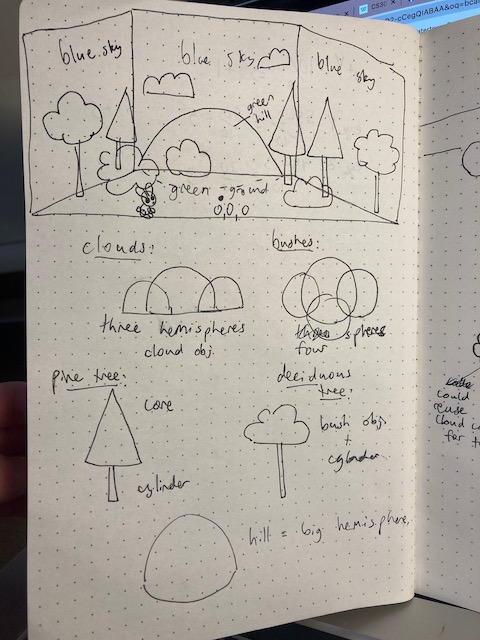 blue sky
blue sky
blue sky
green
hill
green ground
0,0,0
clouds:
bushes:
three hemispheres
cloud obj.
three spheres
four
pine tree:
cone
cylinder
deciduous
tree:
bush obj.
+
cylinder
hill = big hemisphere,
could
reuse
cloud
for
CS30